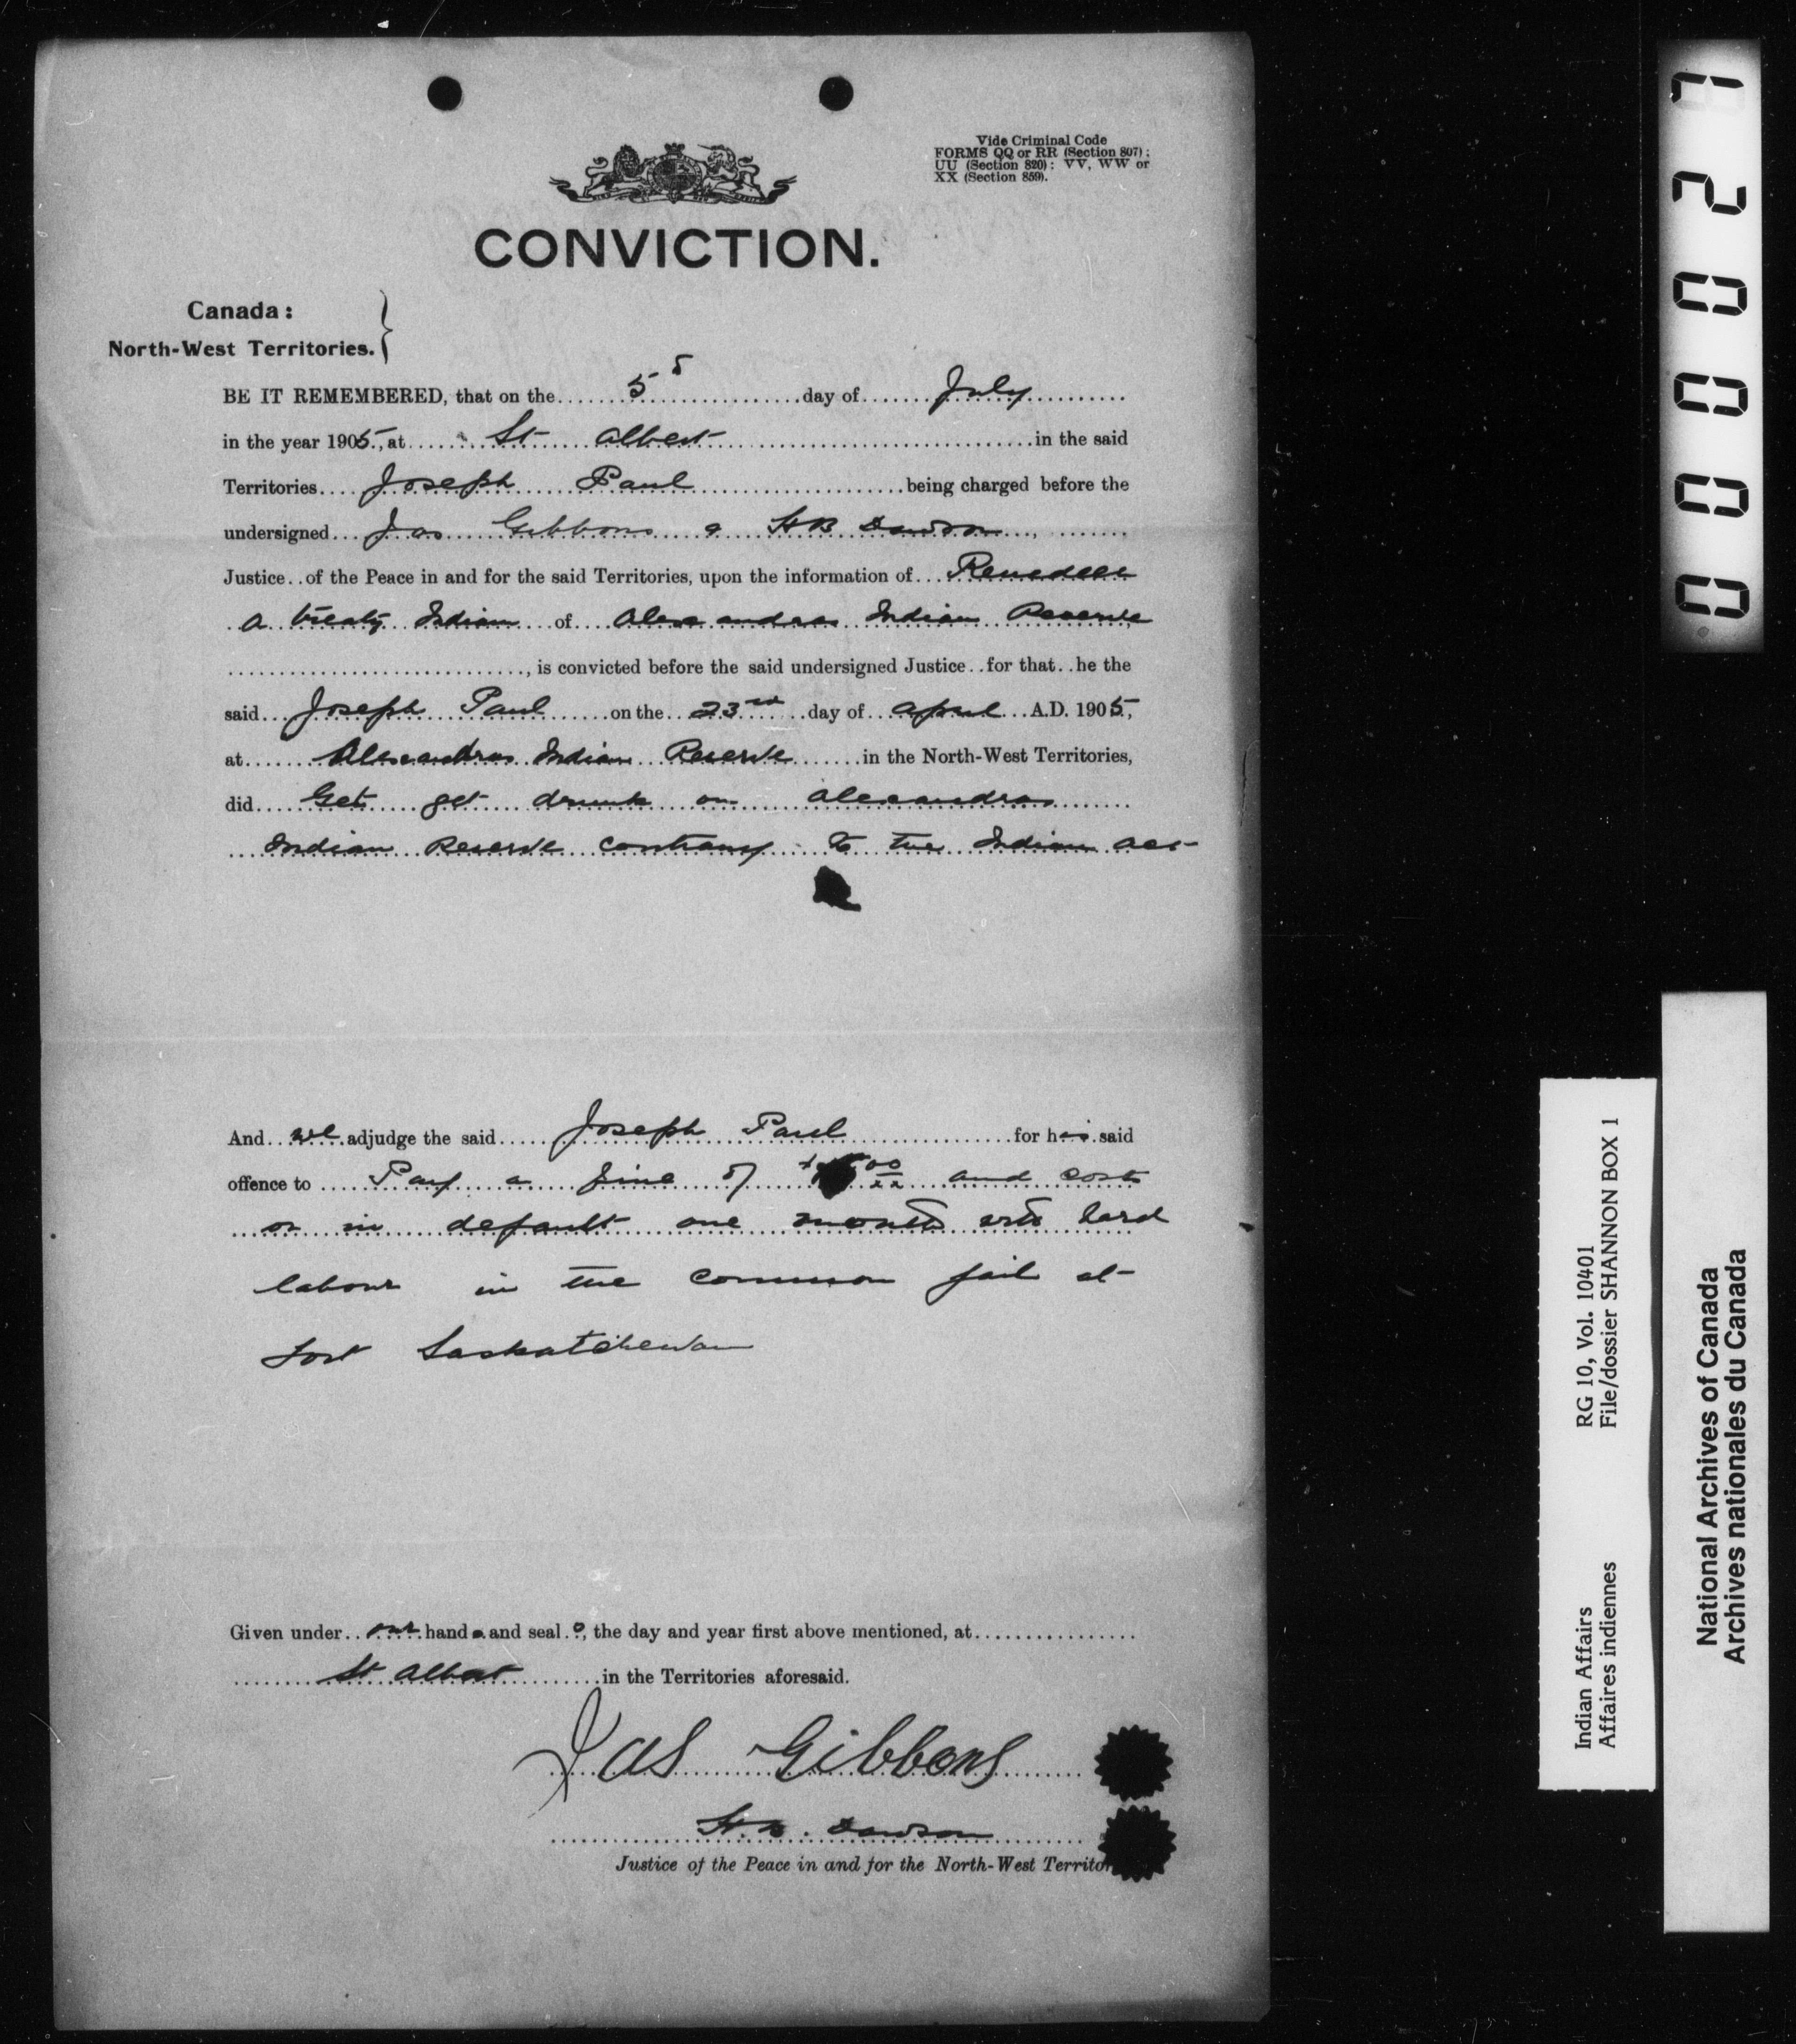 Vide Criminal Code
FORMS QQ or RR (Section 807) ;
UU (Section 820) ; VV, WW or
XX (Section 859).
CONVICTION.
Canada :
North-West Territories.
BE IT REMEMBERED, that on the 5 day of July
in the year 1905, at St Albert in the said
Territories Joseph Paul being charged before the
undersigned Jas Gibbons & HB Dawson
Justice of the Peace in and for the said Territories, upon the information of
a treaty Indian of Alexandras Indian Reserve
, is convicted before the said undersigned Justice for that he the
said Joseph Paul on the 23rd day of April A.D. 1905,
at Alexandras Indian Reserve in the North-West Territories,
did Get get drunk on Alexandras
Indian Reserve contrary to the Indian act
And we adjudge the said Joseph Paul for his said
offence to Pay a fine of and costs
or in default one month with hard
labour in the common jail at
Fort Saskatchewan
Given under our hands and seals, the day and year first above mentioned, at
St Albert in the Territories aforesaid.
Jas Gibbons
H.B. Dawson
Justice of the Peace in and for the North-West Territor
0000271
Indian Affairs RG 10, Vol. 10401
Affaires indiennes File/dossier SHANNON BOX 1
National Archives of Canada
Archives nationales du Canada